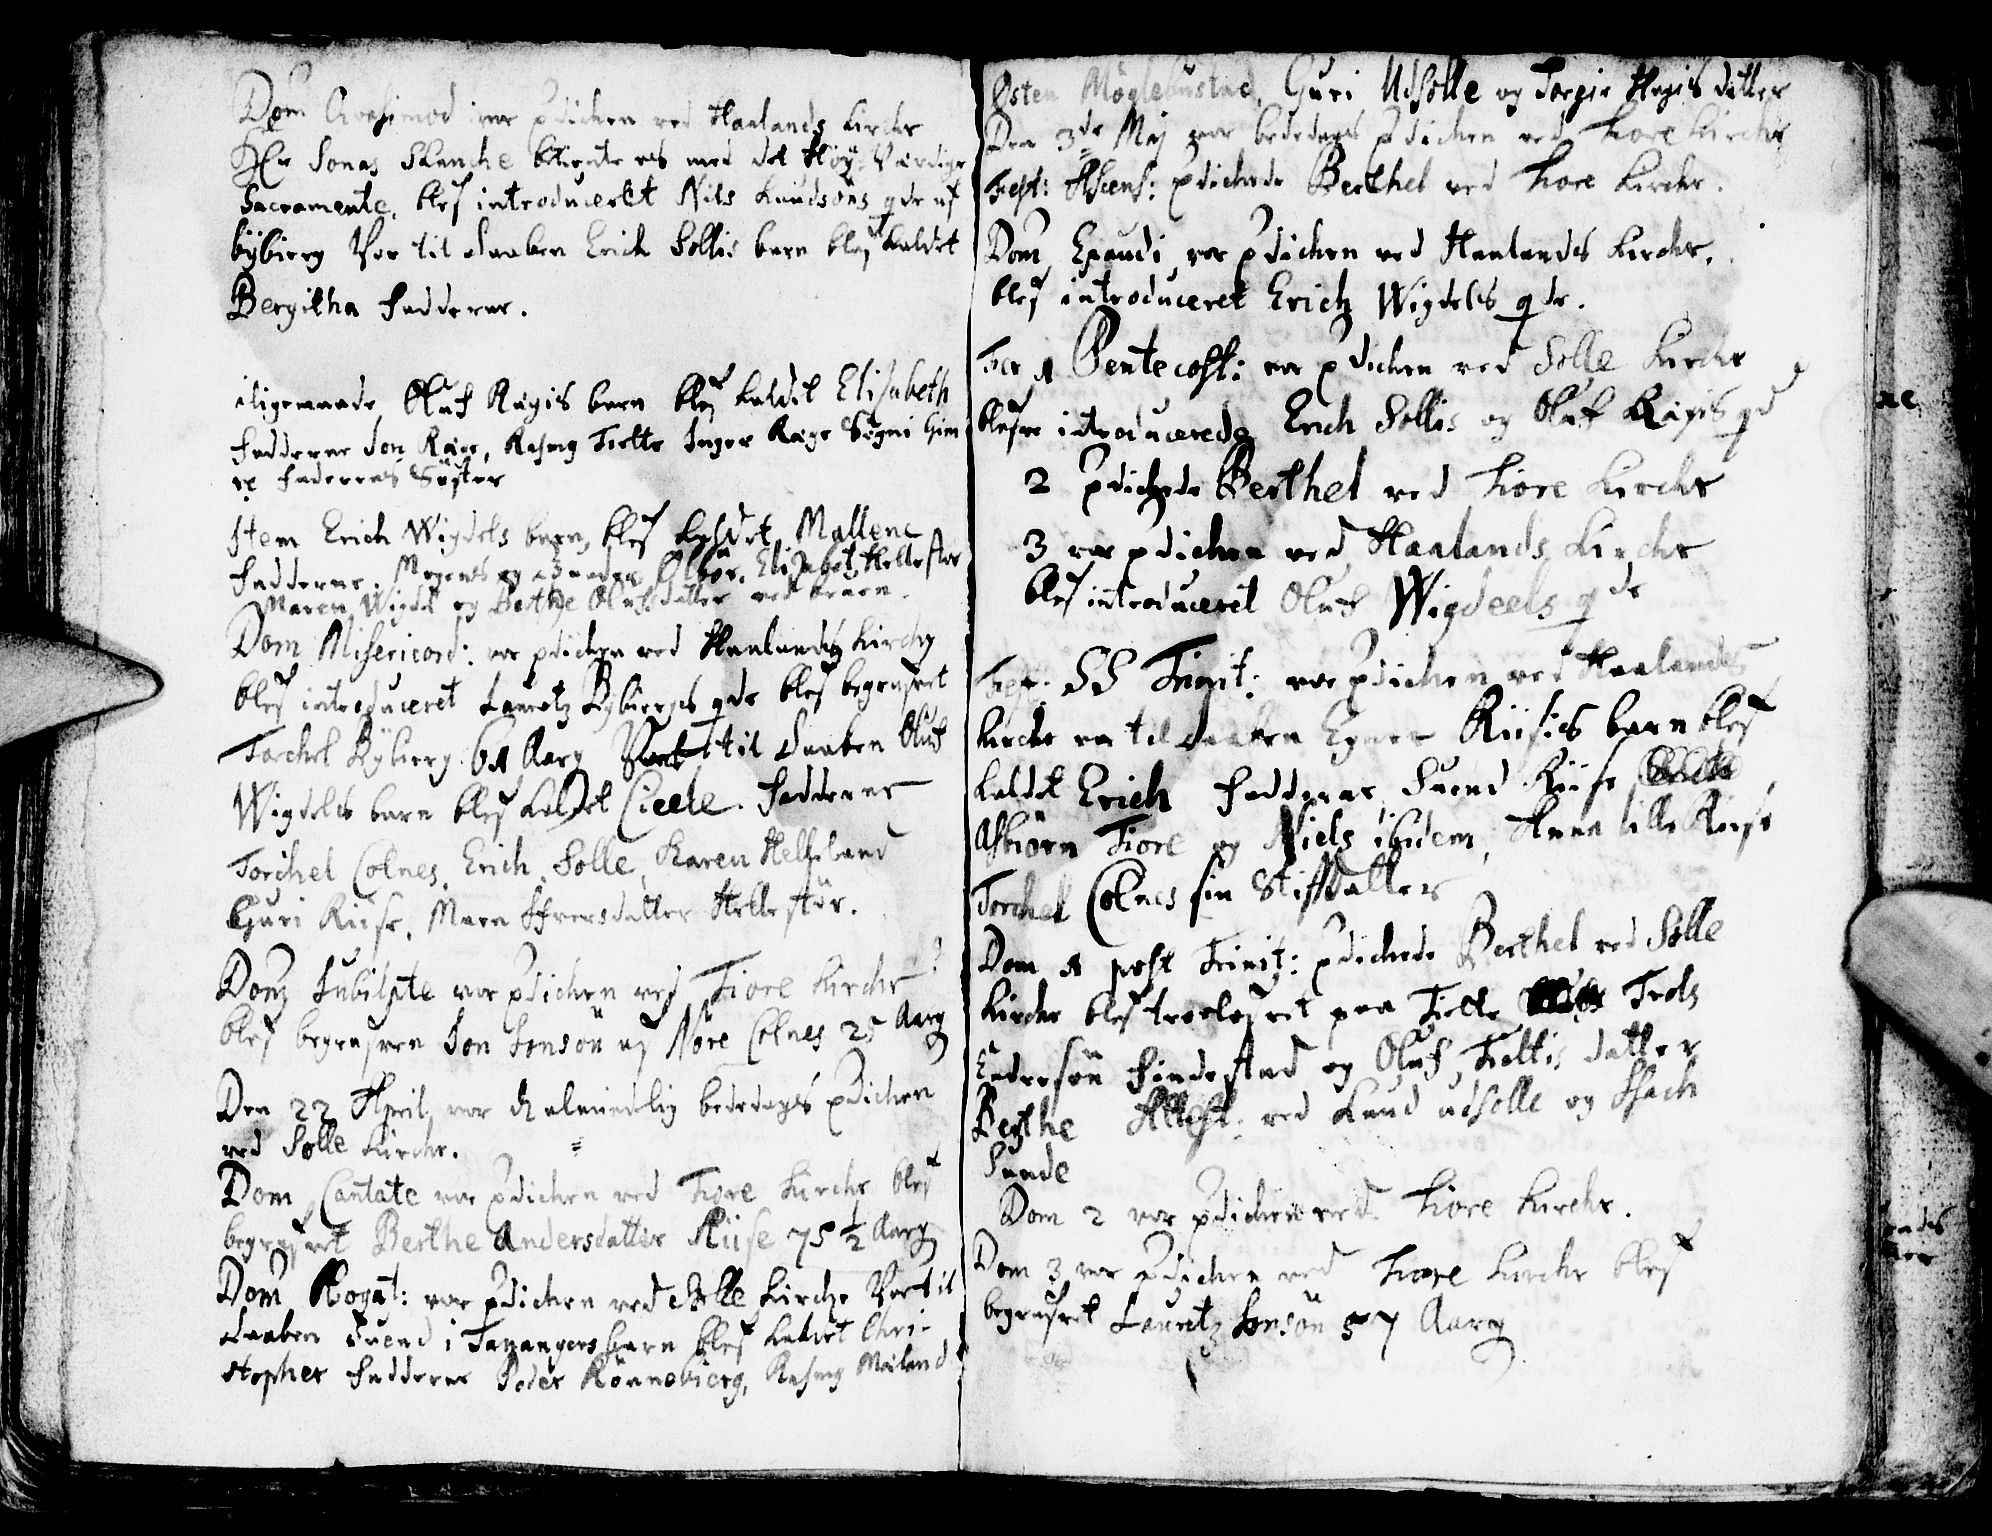 Dom Qvasimod: var pdichen ved Haalands Kirche
Hr Jonas Schanche betiente os med det Höy-Værdige
Sacramente, blef introduceret Nils Knudsöns qde uf
bybierg Var til daaben Erich Sollis barn blef kaldet
Bergitha fadderne.
iligemaade Oluf Rægis barn blef kaldet Elisabeth
fadderne Jon Ræge, Rasmg Tielte Inger Ræge Signi
faderens Syster
Item Erich Wigdels barn, blef kaldet Mallene
fadderne. Mogens Elisabet Hellestöe
Maren Wigdel og Berthe Olufsdatter
Dom Misericord: var pdichen ved Haalands Kirche
blef introduceret Lauretz Bybiergs qde blef begrafvet
Torchel Bybierg 61 Aarg Var til daaben Oluf
Wigdels barn blef kaldet Cicele. fadderne
Torchel Colnes, Erich Solle, Karen Helleland
Guri Riise, Maren Hellestöe.
Dom Jubilate var pdichen ved Tiore Kirche
blef begrafven Jon Jonsön uf Nöre Colnes 25 Aarg
Den 22 April var dend almindelig bededags pdichen
ved Solle Kirche.
Dom Cantate var pdichen ved Tiore Kirche blef
begrafvet Berthe Andersdatter Riise 75 ½ Aarg
Dom Rogat: var pdichen ved Solle Kirche Var til
daaben Suend i Tanangers barn blef kaldet Chri-
stopher fadderne Peder Rönnebierg, Rasmg Meland
Østen Möglebustad, Guri Udsolle og Torgir Hagis datter
Den 3de Maj var bededags pdichen ved Tiore Kirche
Fest: Ascens: pdichede Berthel ved Tiore Kirche.
Dom Exaudi var pdichen ved Haalands Kirche.
blef introduceret Erich Wigdels qde.
Fer 1 Pentecost: var pdichen ved Solle Kirche
blefve introducerede Erich Sollis og Oluf Rægis qde
2 pdichede Berthel ved Tiore Kirche
3 var pdichen ved Haalands Kirche
blef introduceret Oluf Wigdeels qde
Fest: SS Trinit: var pdichen ved Haalands
Kirche var til daaben Riisis barn blef
kaldet Erich fadderne Suend Riise
Asbiörn Tiore og Niels ibidem, Anna lille Riise
Torchel Colnes sin Stifdatter
Dom 1 post Trinit: pdichede Berthel ved Solle
Kirche blef trolofvet paa Tielte Trols
Endersön findestad og Oluf Tieltis datter
Berthe Attest: ved Knud udsolle og Isach
Sunde
Dom 2 var pdichen ved Tiore Kirche.
Dom 3 var pdichen ved Tiore Kirche blef
begrafvet Lauretz Jonsön 57 Aarg